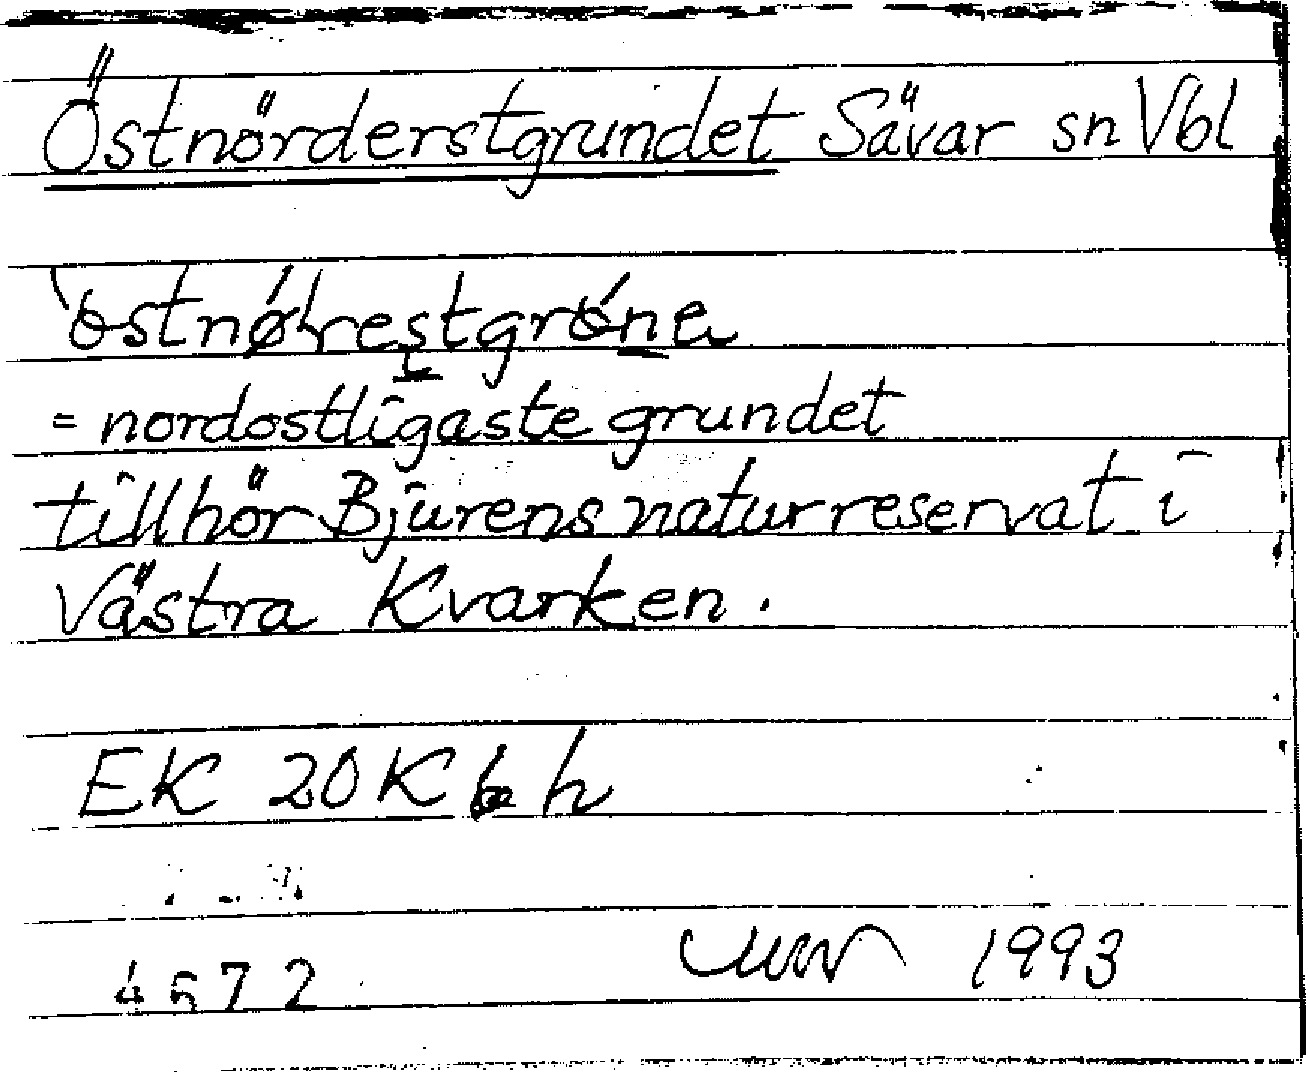 Östnörderstgrundet Sävar sn Vbl
= nordostligaste grundet
tillhör Bjurens naturreservat i
Västra Kvarken.
EK 20K h
4572 1993